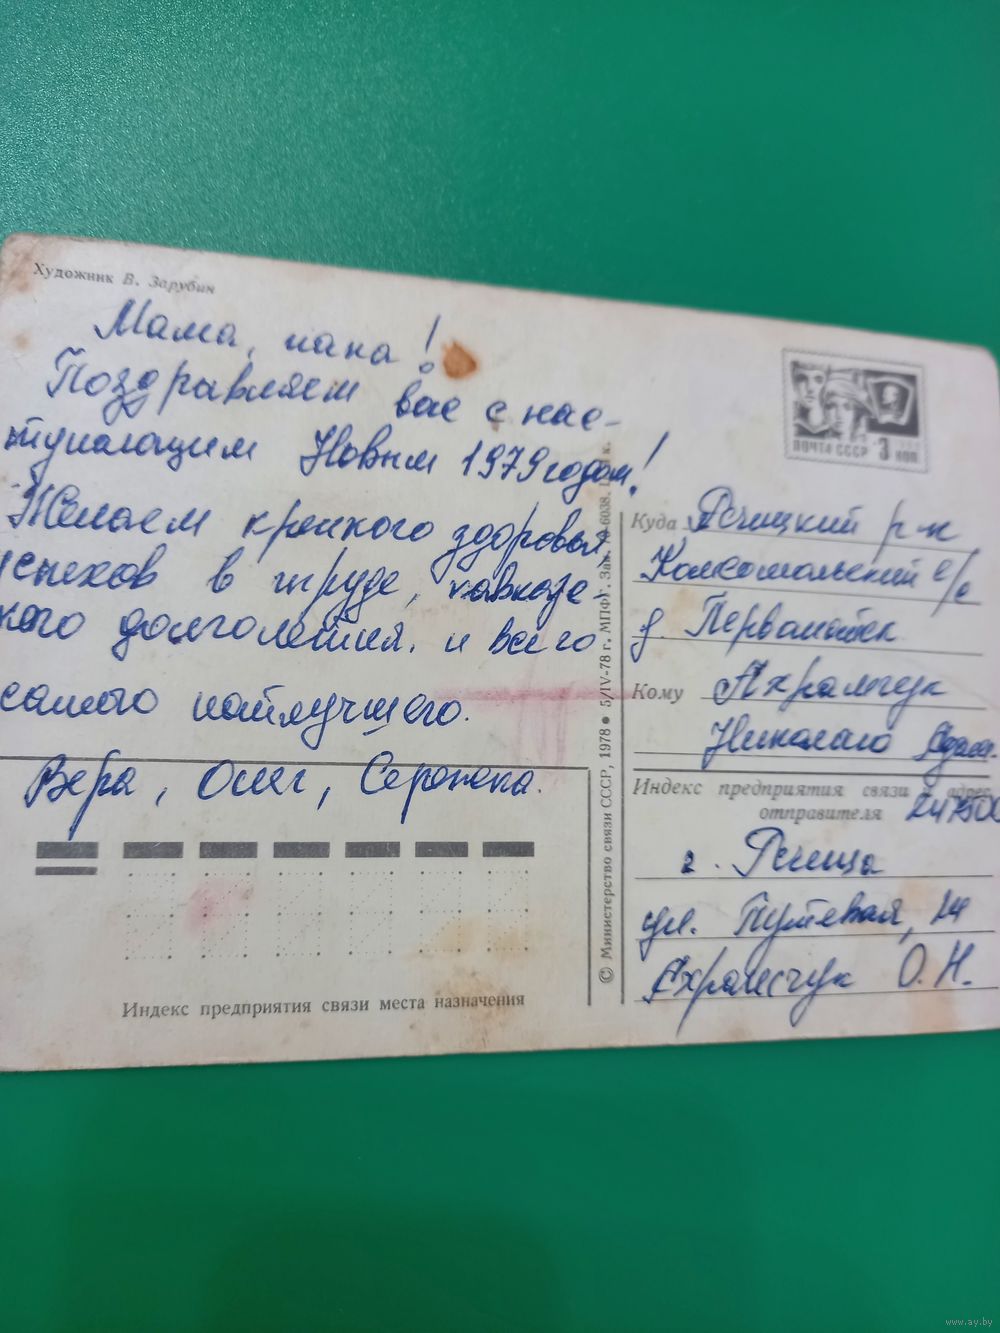 Художник В. Зарубин
Мама, папа!
Поздравляем вас с нас-
тупающим Новым 1979 годом!
Желаем крепкого здоровья,
успехов в труде, кавказс
кого долголетия. и всего
самого наилучшего.
Вера, Олег, Сережка.
Индекс предприятия связи места назначения
© Министерство связи СССР, 1978 ● 5/IV-78 г. МПФГ. Зак. 6038.
ПОЧТА СССР 3 КОП
Куда Речицкий р-н
Комсомольский с/с
д. Первомайск
Кому
Николаю
Индекс предприятия связи и адрес
отправителя 247500
г. Речица
ул. Путевая, 24
О. Н.
www.ay.by